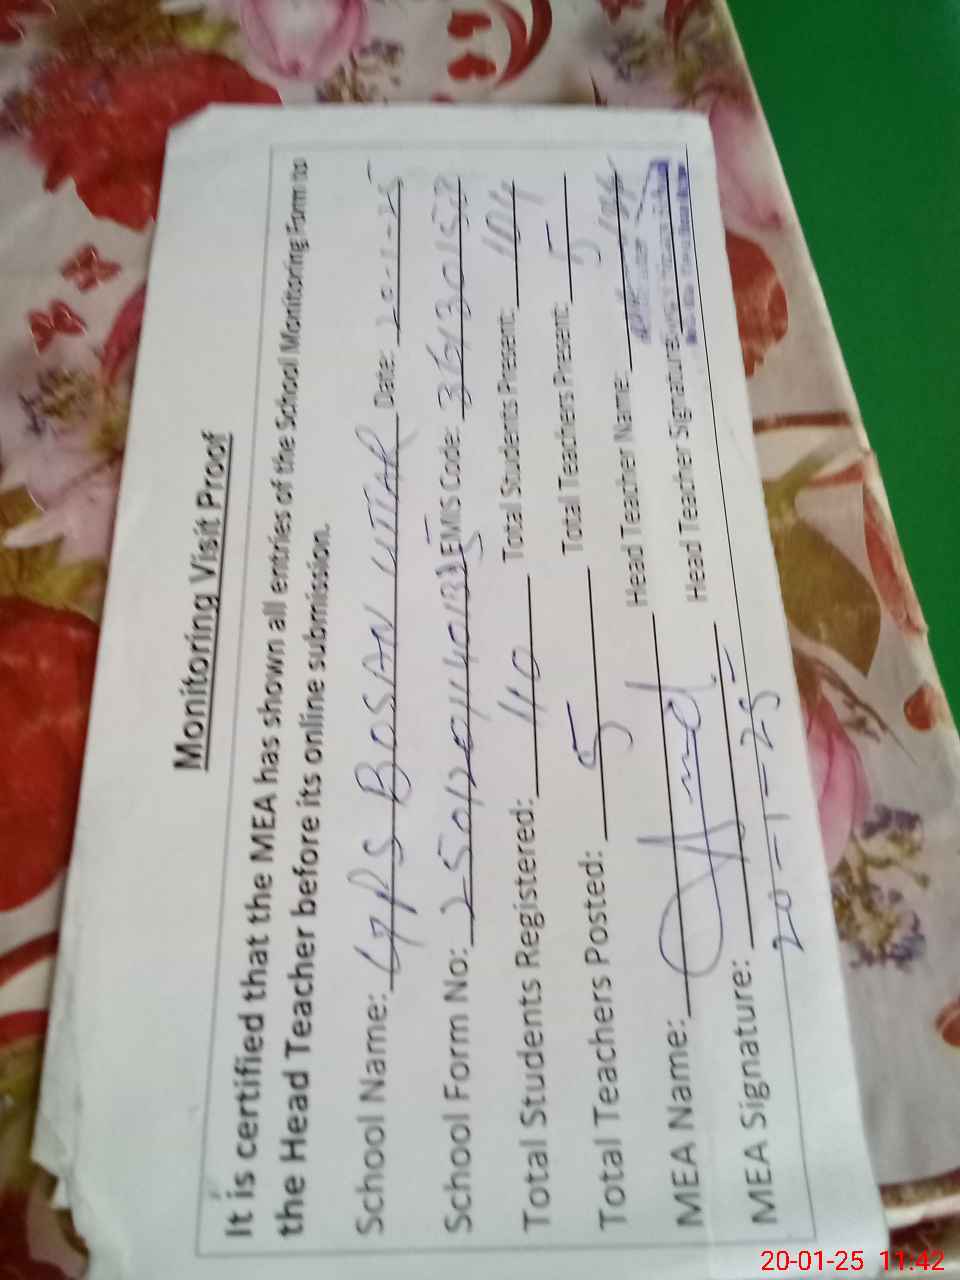 Monitoring Visit Proof
It is certified that the MEA has shown all entries of the School Monitoring Form to
the Head Teacher before its online submission.
School Name: GPS BOSAN UTTAR Date: 20-1-25
School Form No: EMIS Code:
Total Students Registered: 110 Total Students Present: 104
Total Teachers Posted: 5 Total Teachers Present: 5
MEA Name: Head Teacher Name:
MEA Signature: Head Teacher Signature:
20-1-25
20-01-25 11:42